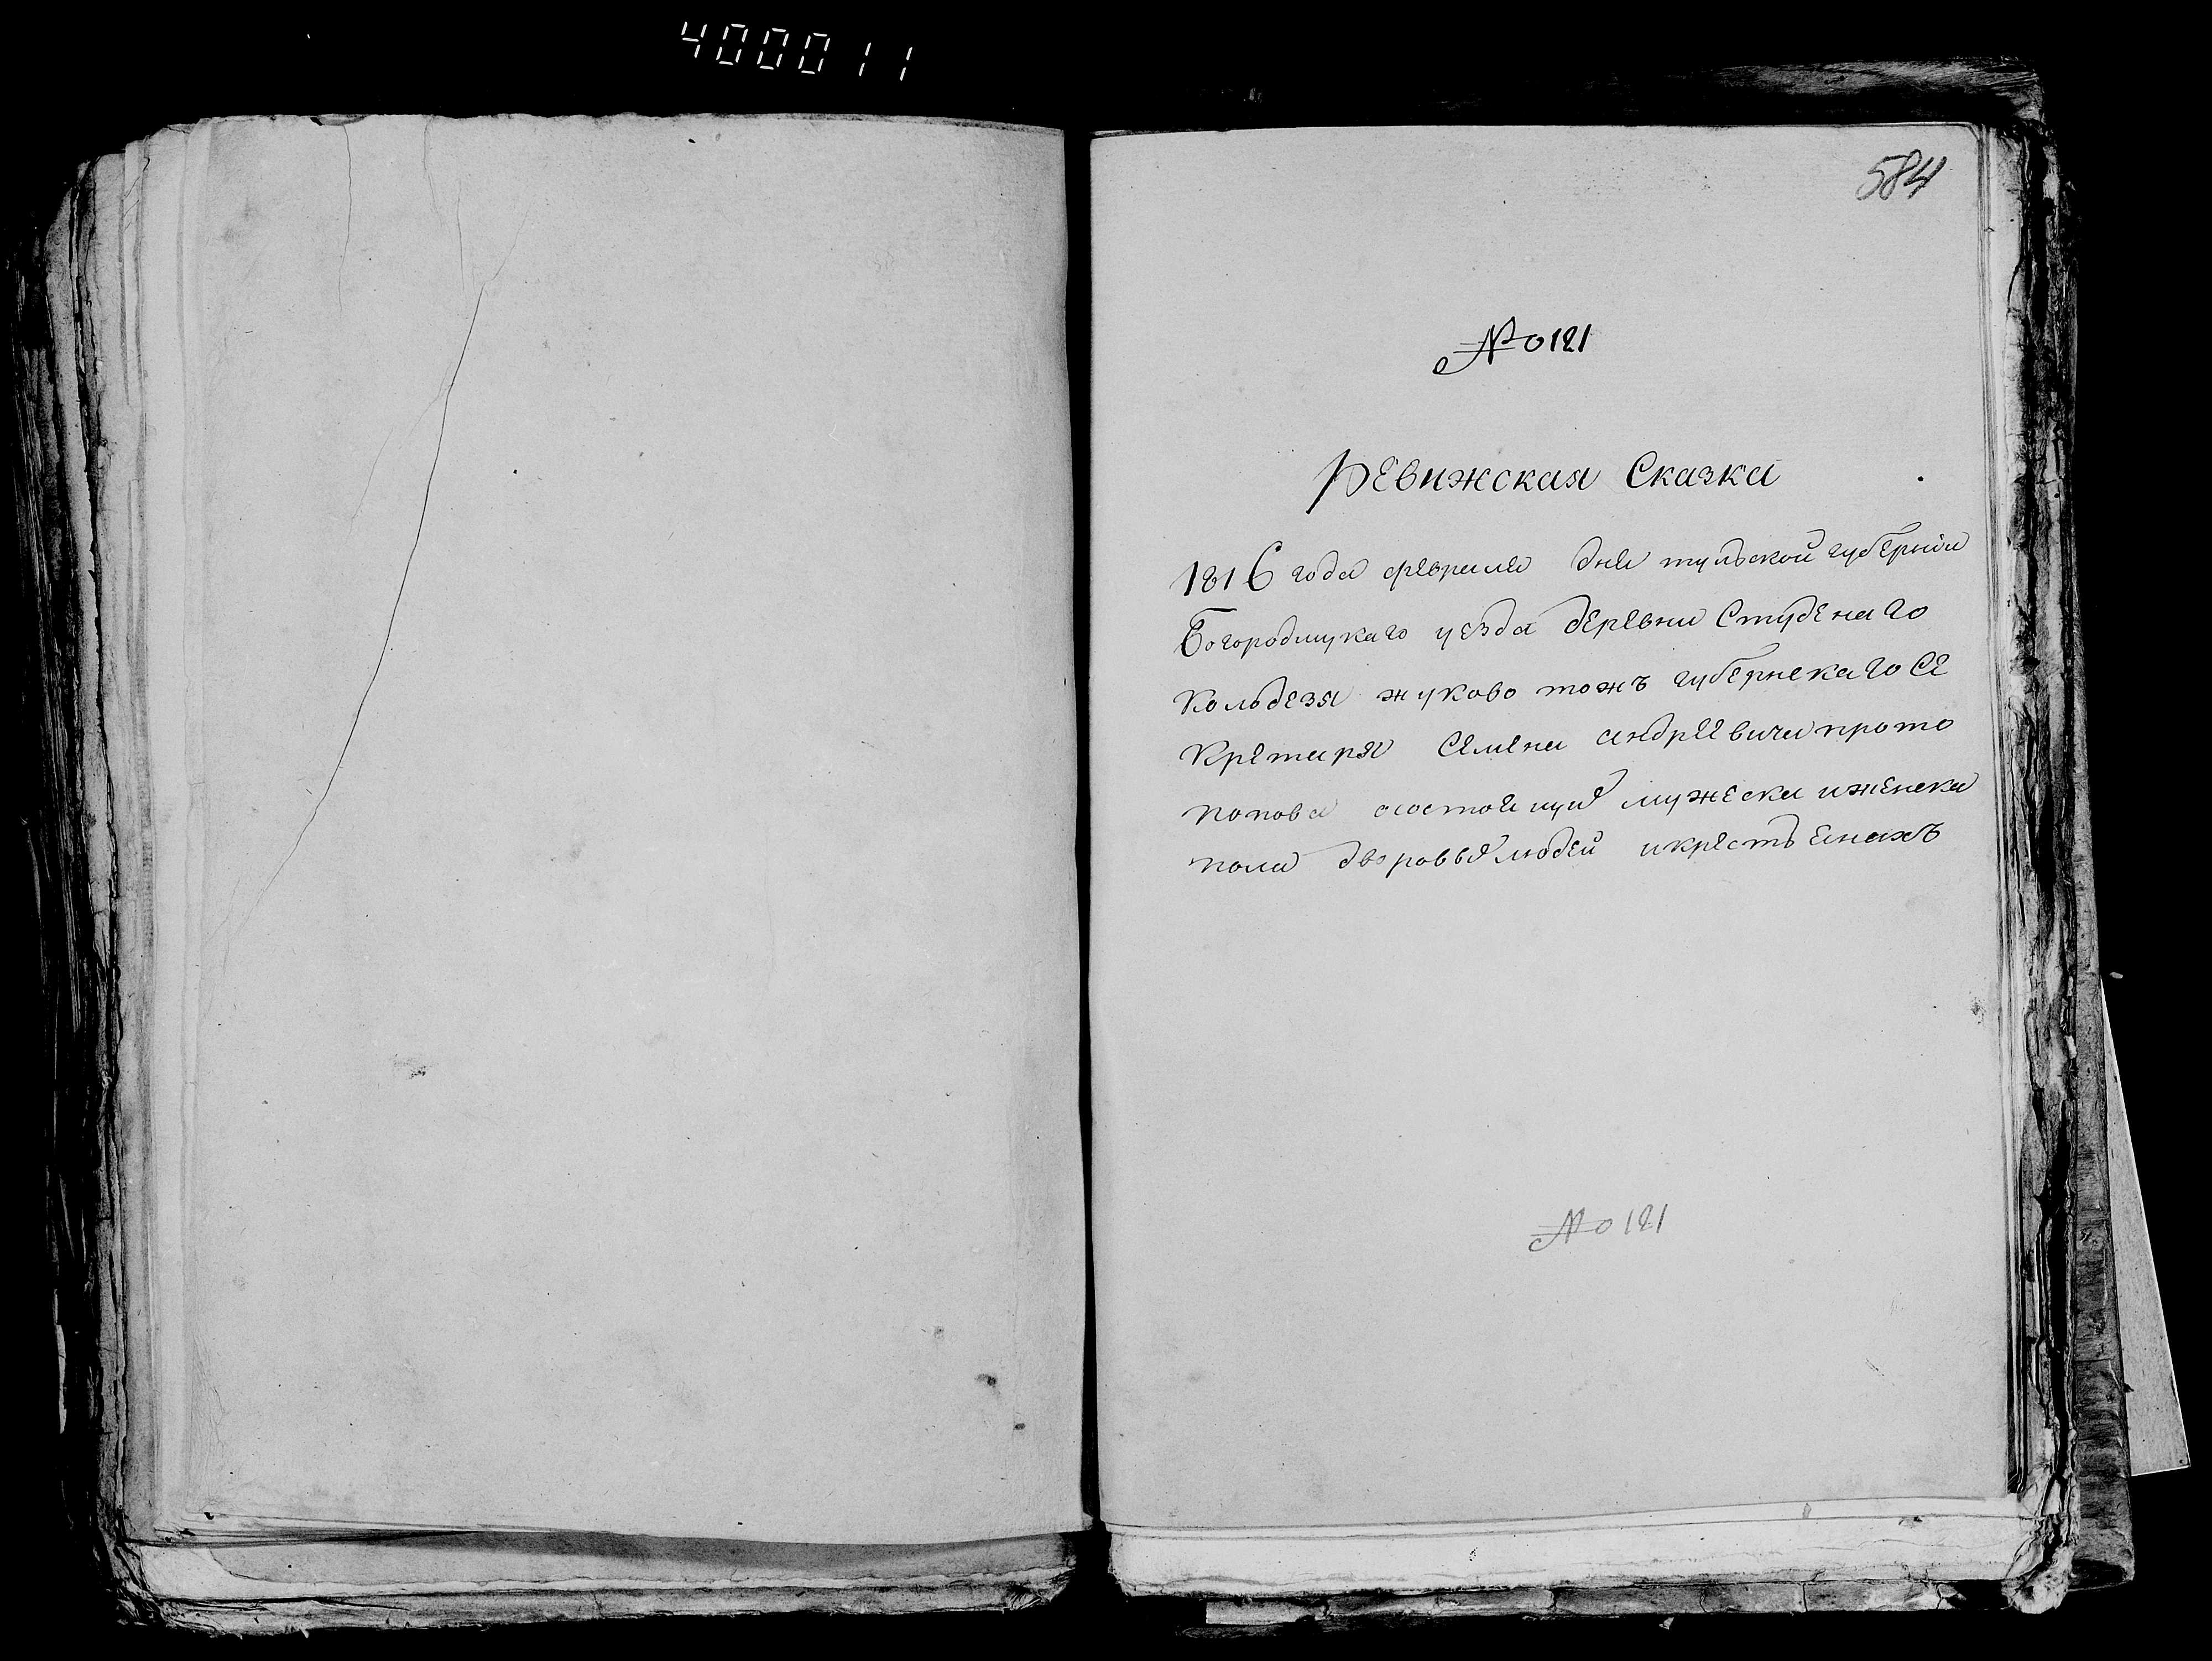 400011
584
№ 121
Ревижская Сказка
1816 года февраля дня тульской губернiи
Богородицкаго уезда деревни Студенаго
Кольдезя жуково тожъ губернскаго се
кретаря Семена андреевича прото
попова осостоящи мужеска иженска
пола дворовы людей икрестьянахъ
№ 121